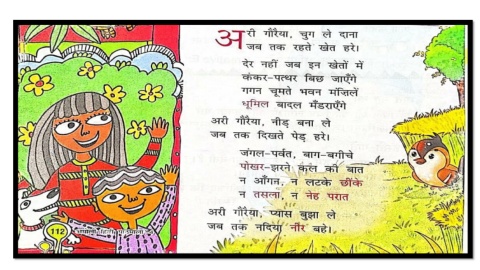 अरी गौरैया, चुग ले दाना
जब तक रहते खेत हरे।
देर नहीं जब इन खेतों में
कंकर-पत्थर बिछ जाएँगे
गगन चूमते भवन मंज़िलें
धूमिल बादल मँडराएँगे
अरी गौरैया, नीड़ बना ले
जब तक दिखते पेड़ हरे।
जंगल-पर्वत, बाग-बगीचे
पोखर-झरने कल की बात
न आँगन, न लटके छींके
न तसला, न नेह परात
अरी गौरैया, प्यास बुझा ले
जब तक नदिया नीर बहे।
112